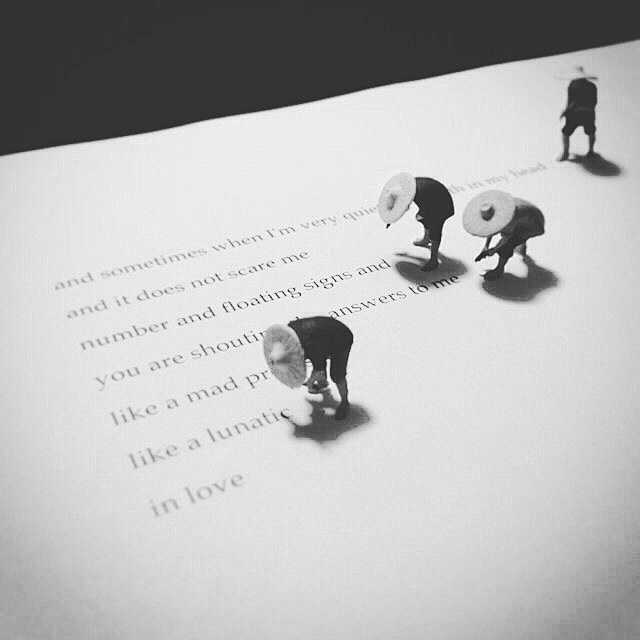 and sometimes when I'm very in my head
and it does not scare me
number and floating signs and
you are answers to me
like a mad
like a lunatic
in love